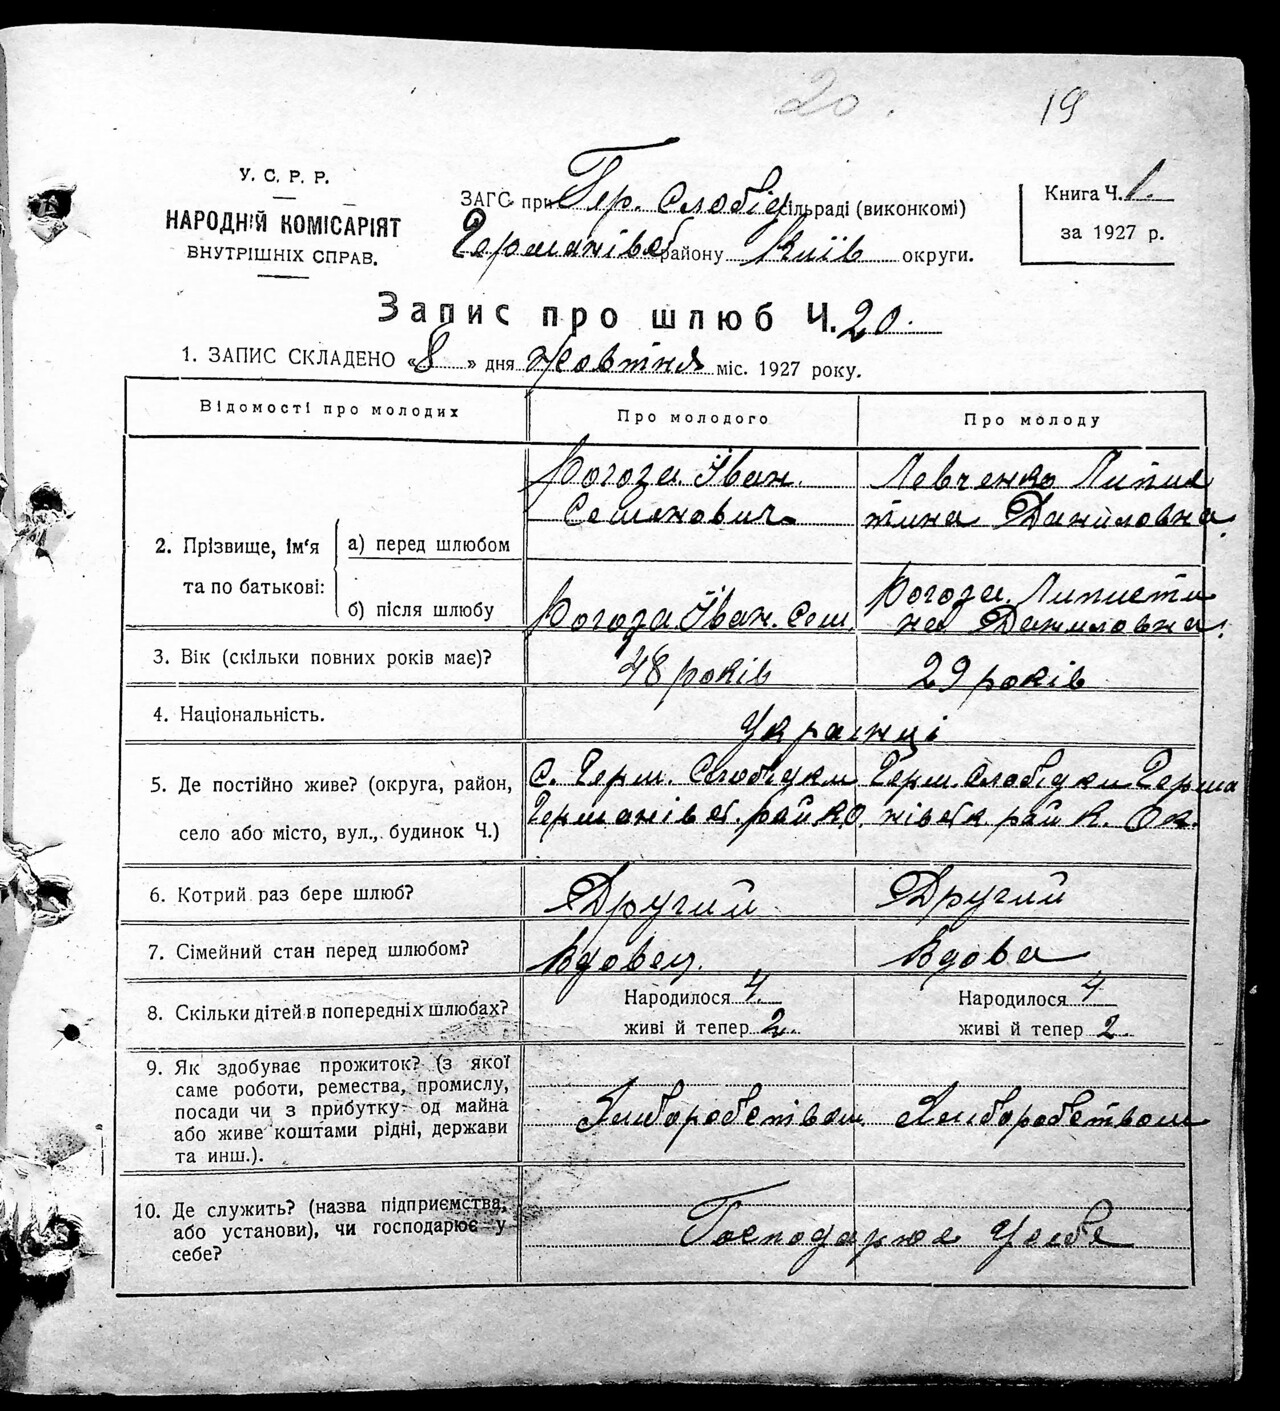 20.
19
У. С. Р. Р.
НАРОДНІЙ КОМІСАРІЯТ
ВНУТРІШНІХ СПРАВ.
ЗАГС при Гер. Слобід сільраді (виконкомі)
Германівсь району Київ округи.
Книга Ч. 1.
за 1927 р.
Запис про шлюб Ч. 20.
1. ЗАПИС СКЛАДЕНО «8» дня Жовтня міс. 1927 року.
Відомості про молодих
Про молодого
Про молоду
2. Прізвище, ім'я та по батькові:
а) перед шлюбом
Рогоза Іван.
Семенович.
Левченко
тина Даниловна.
б) після шлюбу
Рогоза Іван. Сем.
Рогоза. Липисти
на Даниловна.
3. Вік (скільки повних років має)?
48 років
29 років
4. Національність.
Українці
5. Де постійно живе? (округа, район,
село або місто, вул., будинок Ч.)
С. Герм. Слобідки
Германівсь. рай К.О.
Герм. Слобідки Герма
нівськ рай К. Ок.
6. Котрий раз бере шлюб?
Другий
Другий
7. Сімейний стан перед шлюбом?
Вдовец.
Вдова
8. Скільки дітей в попередніх шлюбах?
Народилося 4.
живі й тепер 2.
Народилося 4
живі й тепер 2.
9. Як здобуває прожиток? (з якої
саме роботи, ремества, промислу,
посади чи з прибутку од майна
або живе коштами рідні, держави
та инш.).
Хліборобством.
Хліборобством
10. Де служить? (назва підприємства,
або установи), чи господарює у
себе?
Господарює